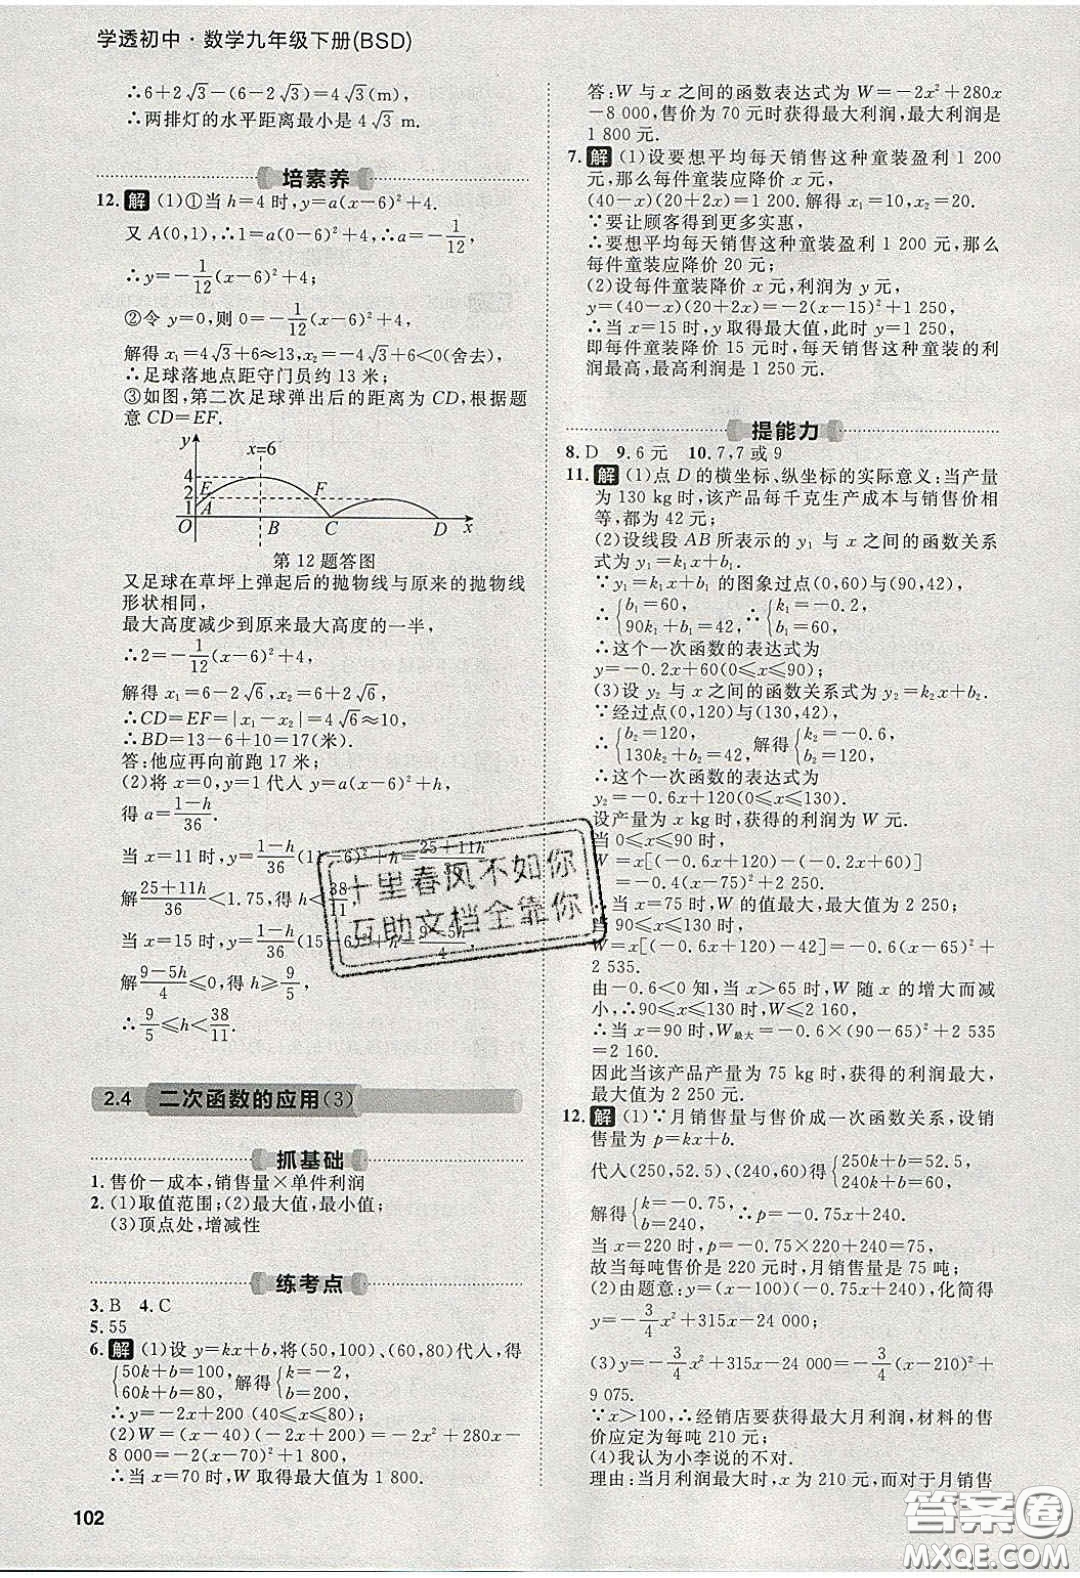 学透初中·数学九年级下册(BSD)
∴6+2√3-(6-2√3)=4√3(m),
∴两排灯的水平距离最小是4√3 m.
培素养
12. 解 (1)①当h=4时,y=a(x-6)²+4.
又A(0,1),∴1=a(0-6)²+4,∴a=-1/12,
∴y=-1/12(x-6)²+4;
②令y=0,则0=-1/12(x-6)²+4,
解得x₁=4√3+6≈13,x₂=-4√3+6<0(舍去),
∴足球落地点距守门员约13米;
③如图,第二次足球弹出后的距离为CD,根据题
意CD=EF.
y
x=6
4
2
1
E
A
F
O
B
C
D
x
第12题答图
又足球在草坪上弹起后的抛物线与原来的抛物线
形状相同,
最大高度减少到原来最大高度的一半,
∴2=-1/12(x-6)²+4,
解得x₁=6-2√6,x₂=6+2√6,
∴CD=EF=|x₁-x₂|=4√6≈10,
∴BD=13-6+10=17(米).
答:他应再向前跑17米;
(2)将x=0,y=1代入y=a(x-6)²+h,
得a=(1-h)/36.
当x=11时,y=(1-h)/36(11-6)²+h=(25+11h)/36,
解(25+11h)/36<1.75,得h<38/11.
当x=15时,y=(1-h)/36(15-6)²+h=(9-5h)/4,
解(9-5h)/4≤0,得h≥9/5,
∴9/5≤h<38/11.
2.4 二次函数的应用(3)
抓基础
1. 售价-成本,销售量×单件利润
2. (1)取值范围;(2)最大值,最小值;
(3)顶点处,增减性
练考点
3. B 4. C
5. 55
6. 解 (1)设y=kx+b,将(50,100)、(60,80)代入,得
{50k+b=100, 60k+b=80, 解得{k=-2, b=200,
∴y=-2x+200(40≤x≤80);
(2)W=(x-40)(-2x+200)=-2x²+280x-
8 000=-2(x-70)²+1 800,
∴当x=70时,W取得最大值为1 800.
102
答:W与x之间的函数表达式为W=-2x²+280x
-8 000,售价为70元时获得最大利润,最大利润是
1 800元.
7. 解 (1)设要想平均每天销售这种童装盈利1 200
元,那么每件童装应降价x元,
(40-x)(20+2x)=1 200.解得x₁=10,x₂=20.
∵要让顾客得到更多实惠,
∴要想平均每天销售这种童装盈利1 200元,那么
每件童装应降价20元;
(2)设每件童装降价x元,利润为y元,
y=(40-x)(20+2x)=-2(x-15)²+1 250,
∴当x=15时,y取得最大值,此时y=1 250,
即每件童装降价15元时,每天销售这种童装的利
润最高,最高利润是1 250元.
提能力
8. D 9. 6元 10. 7,7或9
11. 解 (1)点D的横坐标、纵坐标的实际意义:当产量
为130 kg时,该产品每千克生产成本与销售价相
等,都为42元;
(2)设线段AB所表示的y₁与x之间的函数关系
式为y₁=k₁x+b₁.
∵y₁=k₁x+b₁的图象过点(0,60)与(90,42),
∴{b₁=60, 90k₁+b₁=42, ∴{k₁=-0.2, b₁=60,
∴这个一次函数的表达式为
y=-0.2x+60(0≤x≤90);
(3)设y₂与x之间的函数关系式为y₂=k₂x+b₂.
∵经过点(0,120)与(130,42),
∴{b₂=120, 130k₂+b₂=42, 解得{k₂=-0.6, b₂=120,
∴这个一次函数的表达式为
y₂=-0.6x+120(0≤x≤130).
设产量为x kg时,获得的利润为W元.
当0≤x≤90时,
W=x[(-0.6x+120)-(-0.2x+60)]
=-0.4(x-75)²+2 250,
∴当x=75时,W的值最大,最大值为2 250;
当90≤x≤130时,
W=x[(-0.6x+120)-42]=-0.6(x-65)²+
2 535.
由-0.6<0知,当x>65时,W随x的增大而减
小,∴90≤x≤130时,W≤2 160.
∴当x=90时,W最大=-0.6×(90-65)²+2 535
=2 160.
因此当该产品产量为75 kg时,获得的利润最大,
最大值为2 250元.
12. 解 (1)∵月销售量与售价成一次函数关系,设销
售量为p=kx+b.
代入(250,52.5)、(240,60)得{250k+b=52.5, 240k+b=60,
解得{k=-0.75, b=240, ∴p=-0.75x+240.
当x=220时,p=-0.75×220+240=75,
故当每吨售价是220元时,月销售量是75吨;
(2)由题意:y=(x-100)(-0.75x+240),化简得
y=-3/4x²+315x-24 000;
(3)y=-3/4x²+315x-24 000=-3/4(x-210)²+
9 075.
∵x>100,∴经销店要获得最大月利润,材料的售
价应定为每吨210元;
(4)我认为小李说的不对.
理由:当月利润最大时,x为210元,而对于月销售
十里春风不如你
互助文档全靠你
答案圈
MXQE.COM